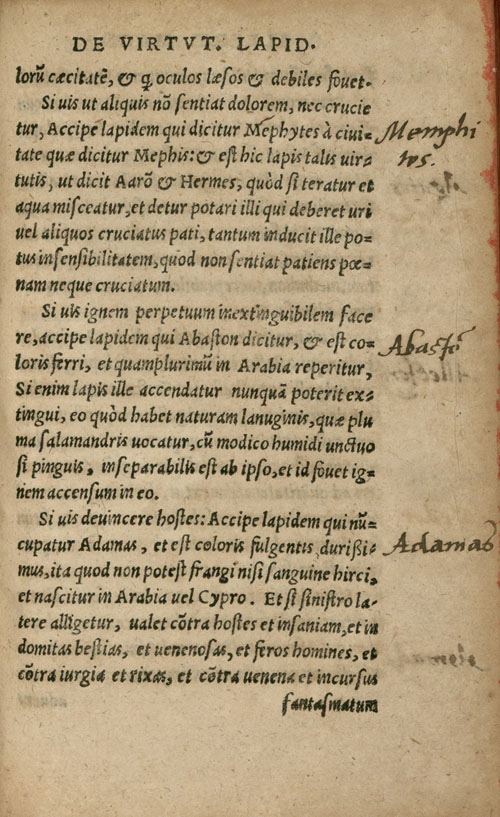 DE VIRTVT. LAPID.
lorū cæcitatē, & ꝙ oculos læsos & debiles fouet.
Si uis ut aliquis nō sentiat dolorem, nec crucie
tur, Accipe lapidem qui dicitur Mephytes à ciui=
tate quæ dicitur Mephis: & est hic lapis talis uir=
tutis, ut dicit Aarō & Hermes, quòd si teratur et
aqua misceatur, et detur potari illi qui deberet uri
uel aliquos cruciatus pati, tantum inducit ille po=
tus insensibilitatem, quod non sentiat patiens pœ=
nam neque cruciatum.
Si uis ignem perpetuum inextinguibilem face
re, accipe lapidem qui Abaston dicitur, & est co=
loris ferri, et quamplurimū in Arabia reperitur,
Si enim lapis ille accendatur nunquā poterit ex=
tingui, eo quòd habet naturam lanuginis, quæ plu
ma salamandris uocatur, cū modico humidi unctuo
si pinguis, inseparabilis est ab ipso, et id fouet ig=
nem accensum in eo.
Si uis deuincere hostes: Accipe lapidem qui nū=
cupatur Adamas, et est coloris fulgentis, durißi=
mus, ita quod non potest frangi nisi sanguine hirci,
et nascitur in Arabia uel Cypro. Et si sinistro la=
tere alligetur, ualet cōtra hostes et insaniam, et in
domitas bestias, et uenenosas, et feros homines, et
cōtra iurgia et rixas, et cōtra uenena et incursus
fantasmatum
Memphi
Abastō
Adamas